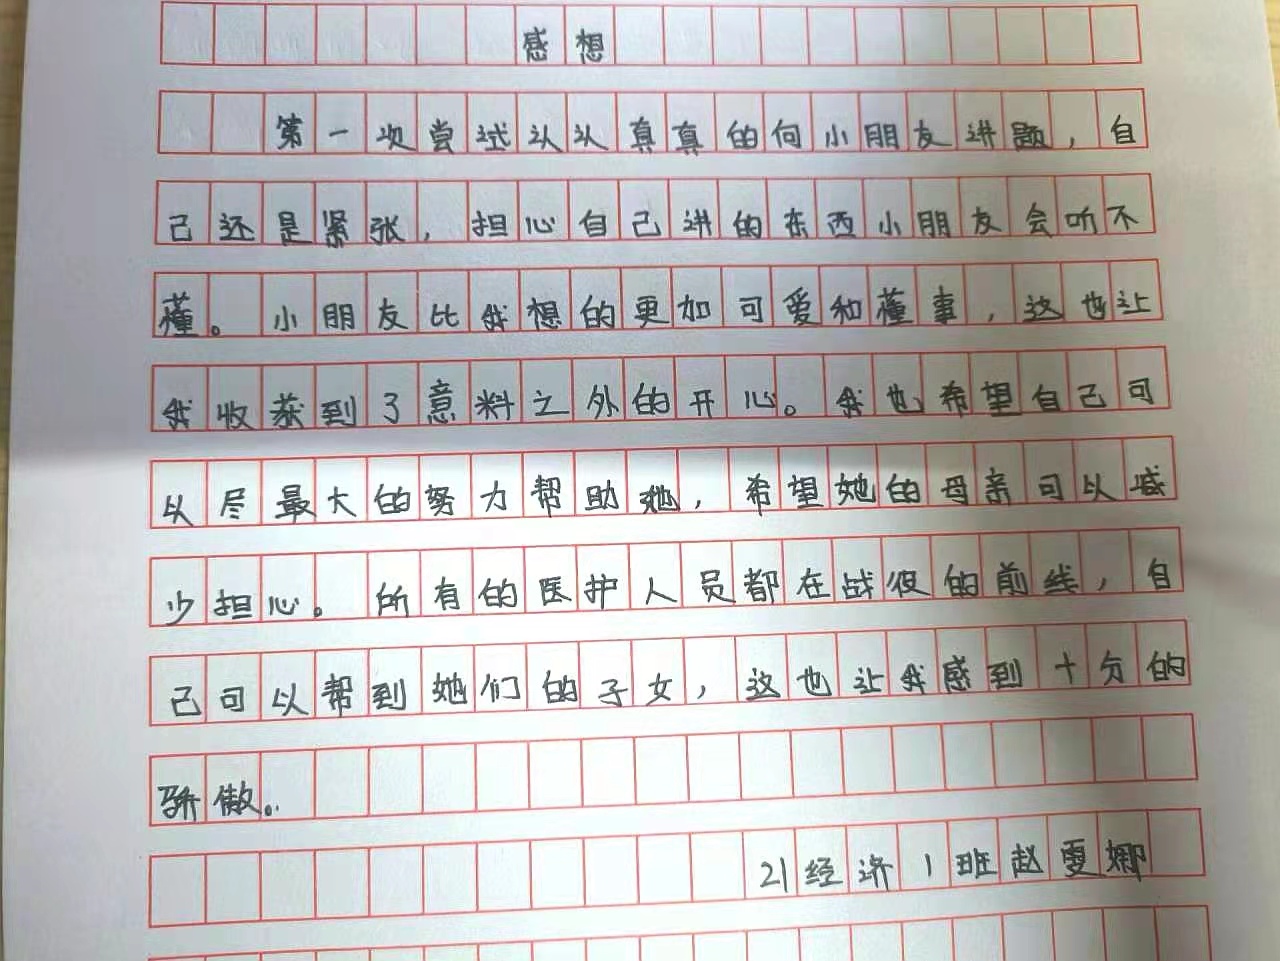 感想
第一次尝试认认真真的向小朋友讲题，自
己还是紧张，担心自己讲的东西小朋友会听不
懂。小朋友比我想的更加可爱和懂事，这也让
我收获到了意料之外的开心。我也希望自己可
以尽最大的努力帮助她，希望她的母亲可以减
少担心。所有的医护人员都在战役的前线，自
己可以帮到她们的子女，这也让我感到十分的
骄傲。
21经济1班赵雯娜